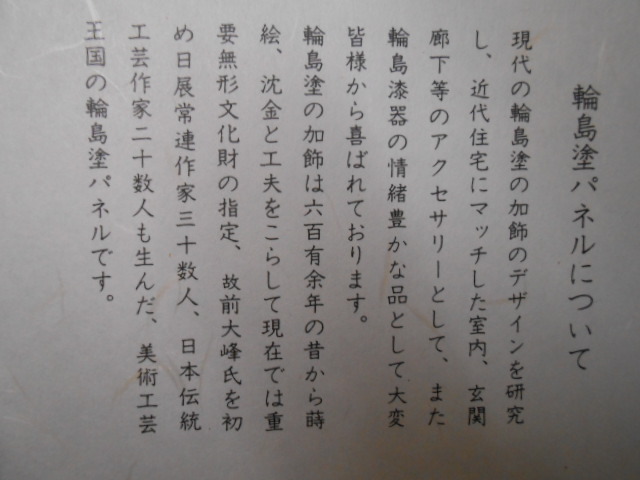 輪島塗パネルについて
現代の輪島塗の加飾のデザインを研究
し、近代住宅にマッチした室内、玄関
廊下等のアクセサリーとして、また
輪島漆器の情緒豊かな品として大変
皆様から喜ばれております。
輪島塗の加飾は六百有余年の昔から蒔
絵、沈金と工夫をこらして現在では重
要無形文化財の指定、故前大峰氏を初
め日展常連作家三十数人、日本伝統
工芸作家二十数人も生んだ、美術工芸
王国の輪島塗パネルです。